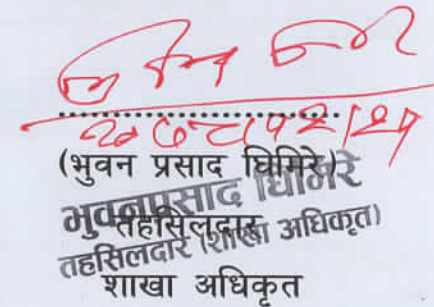 (भुवन प्रसाद घिमिरे)
भुवनप्रसाद घिमिरे
तहसिलदार
तहसिलदार (शाखा अधिकृत)
शाखा अधिकृत